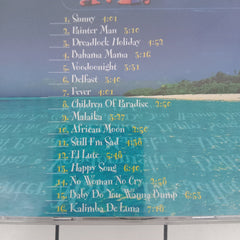 1. Sunny 4:01
2. Painter Man 3:10
3. Dreadlock Holiday 4:52
4. Bahama Mama 3:16
5. Voodoonight 3:31
6. Belfast 3:40
7. Fever 4:01
8. Children Of Paradise 2:50
9. Malaika 3:27
10. African Moon 2:50
11. Still I'm Sad 4:36
12. El Lute 5:46
13. Happy Song 6:40
14. No Woman No Cry 2:50
15. Baby Do You Wanna Bump 6:53
16. Kalimba De Luna 7:10